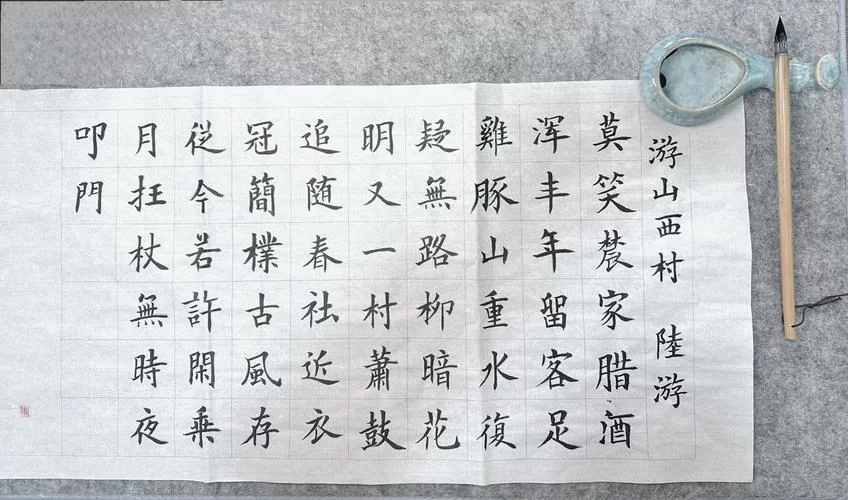 游山西村 陸游
莫笑農家腊酒
浑丰年留客足
雞豚山重水復
疑無路柳暗花
明又一村蕭鼓
追随春社近衣
冠簡樸古風存
從今若許閑乗
月拄杖無時夜
叩門